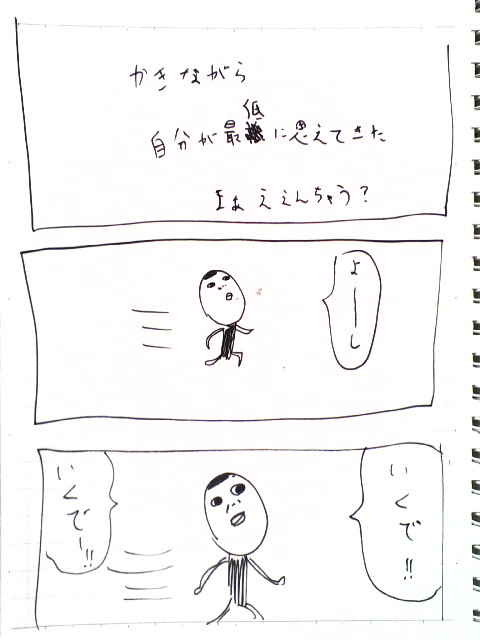 かきながら
自分が最低に思えてきた
まぁええんちゃう?
よーし
いくでー!!
いくでー!!